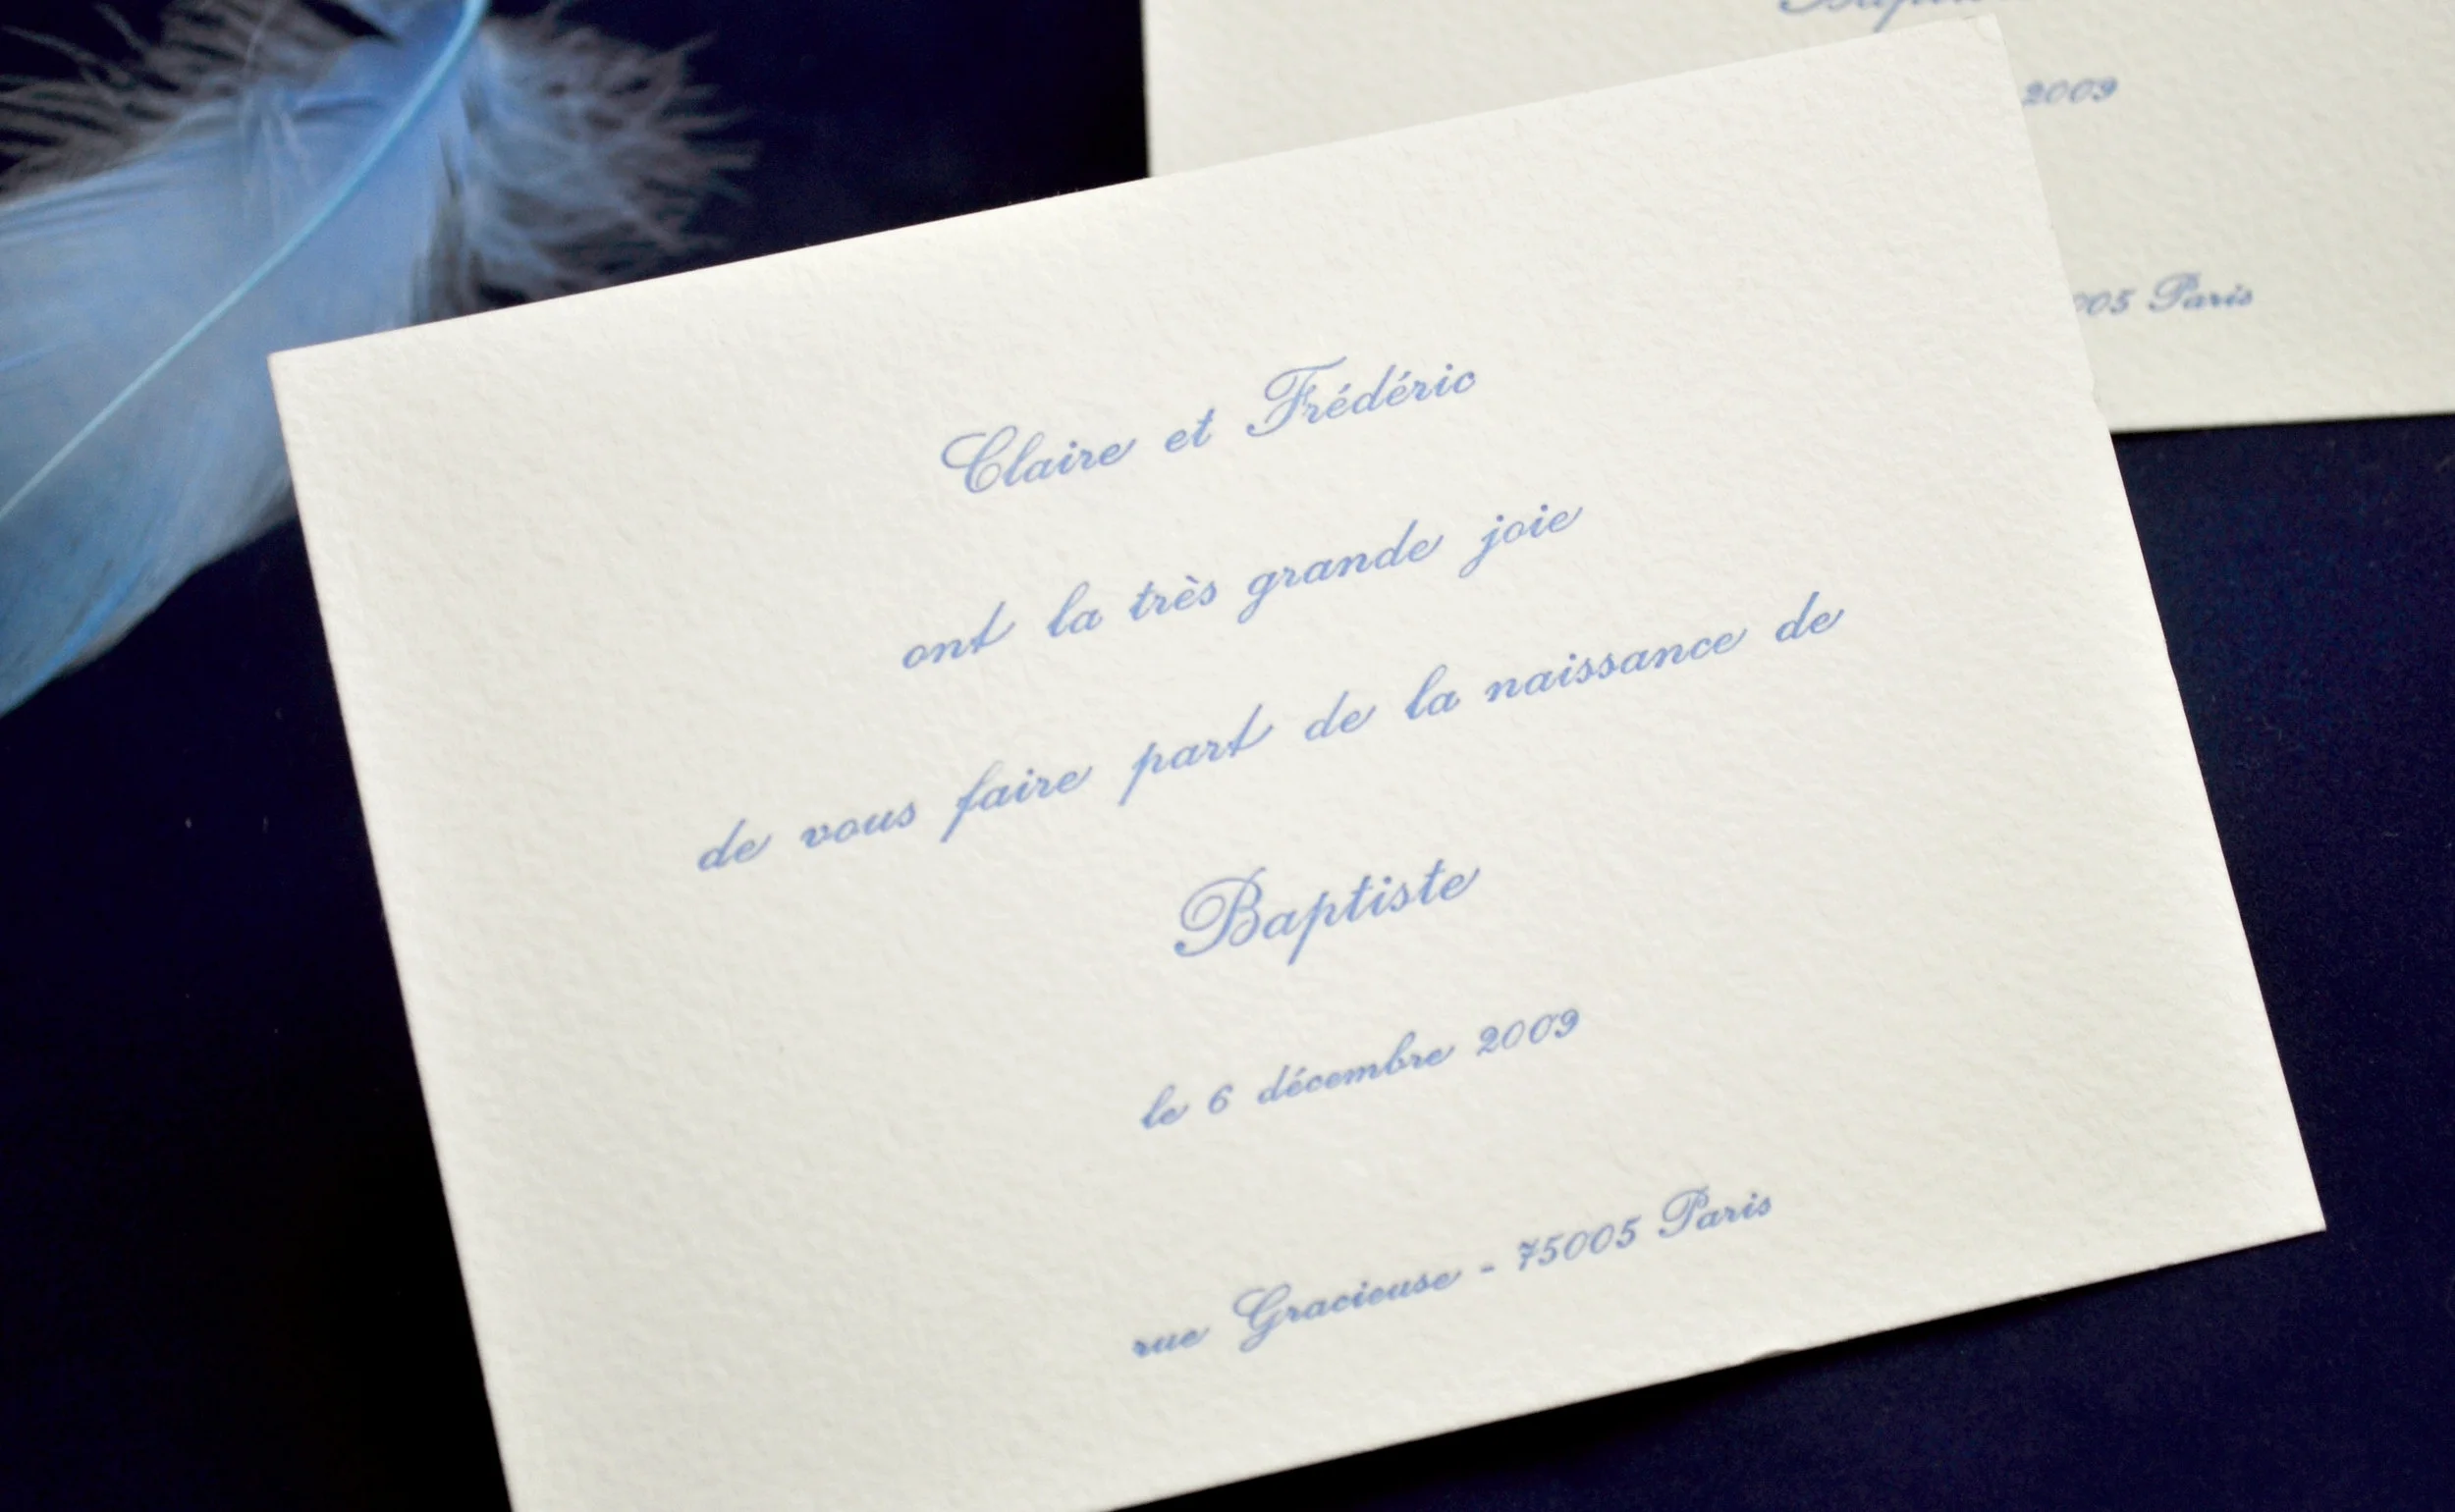 Claire et Frédéric
ont la très grande joie
de vous faire part de la naissance de
Baptiste
le 6 décembre 2009
rue Gracieuse - 75005 Paris
2009
005 Paris